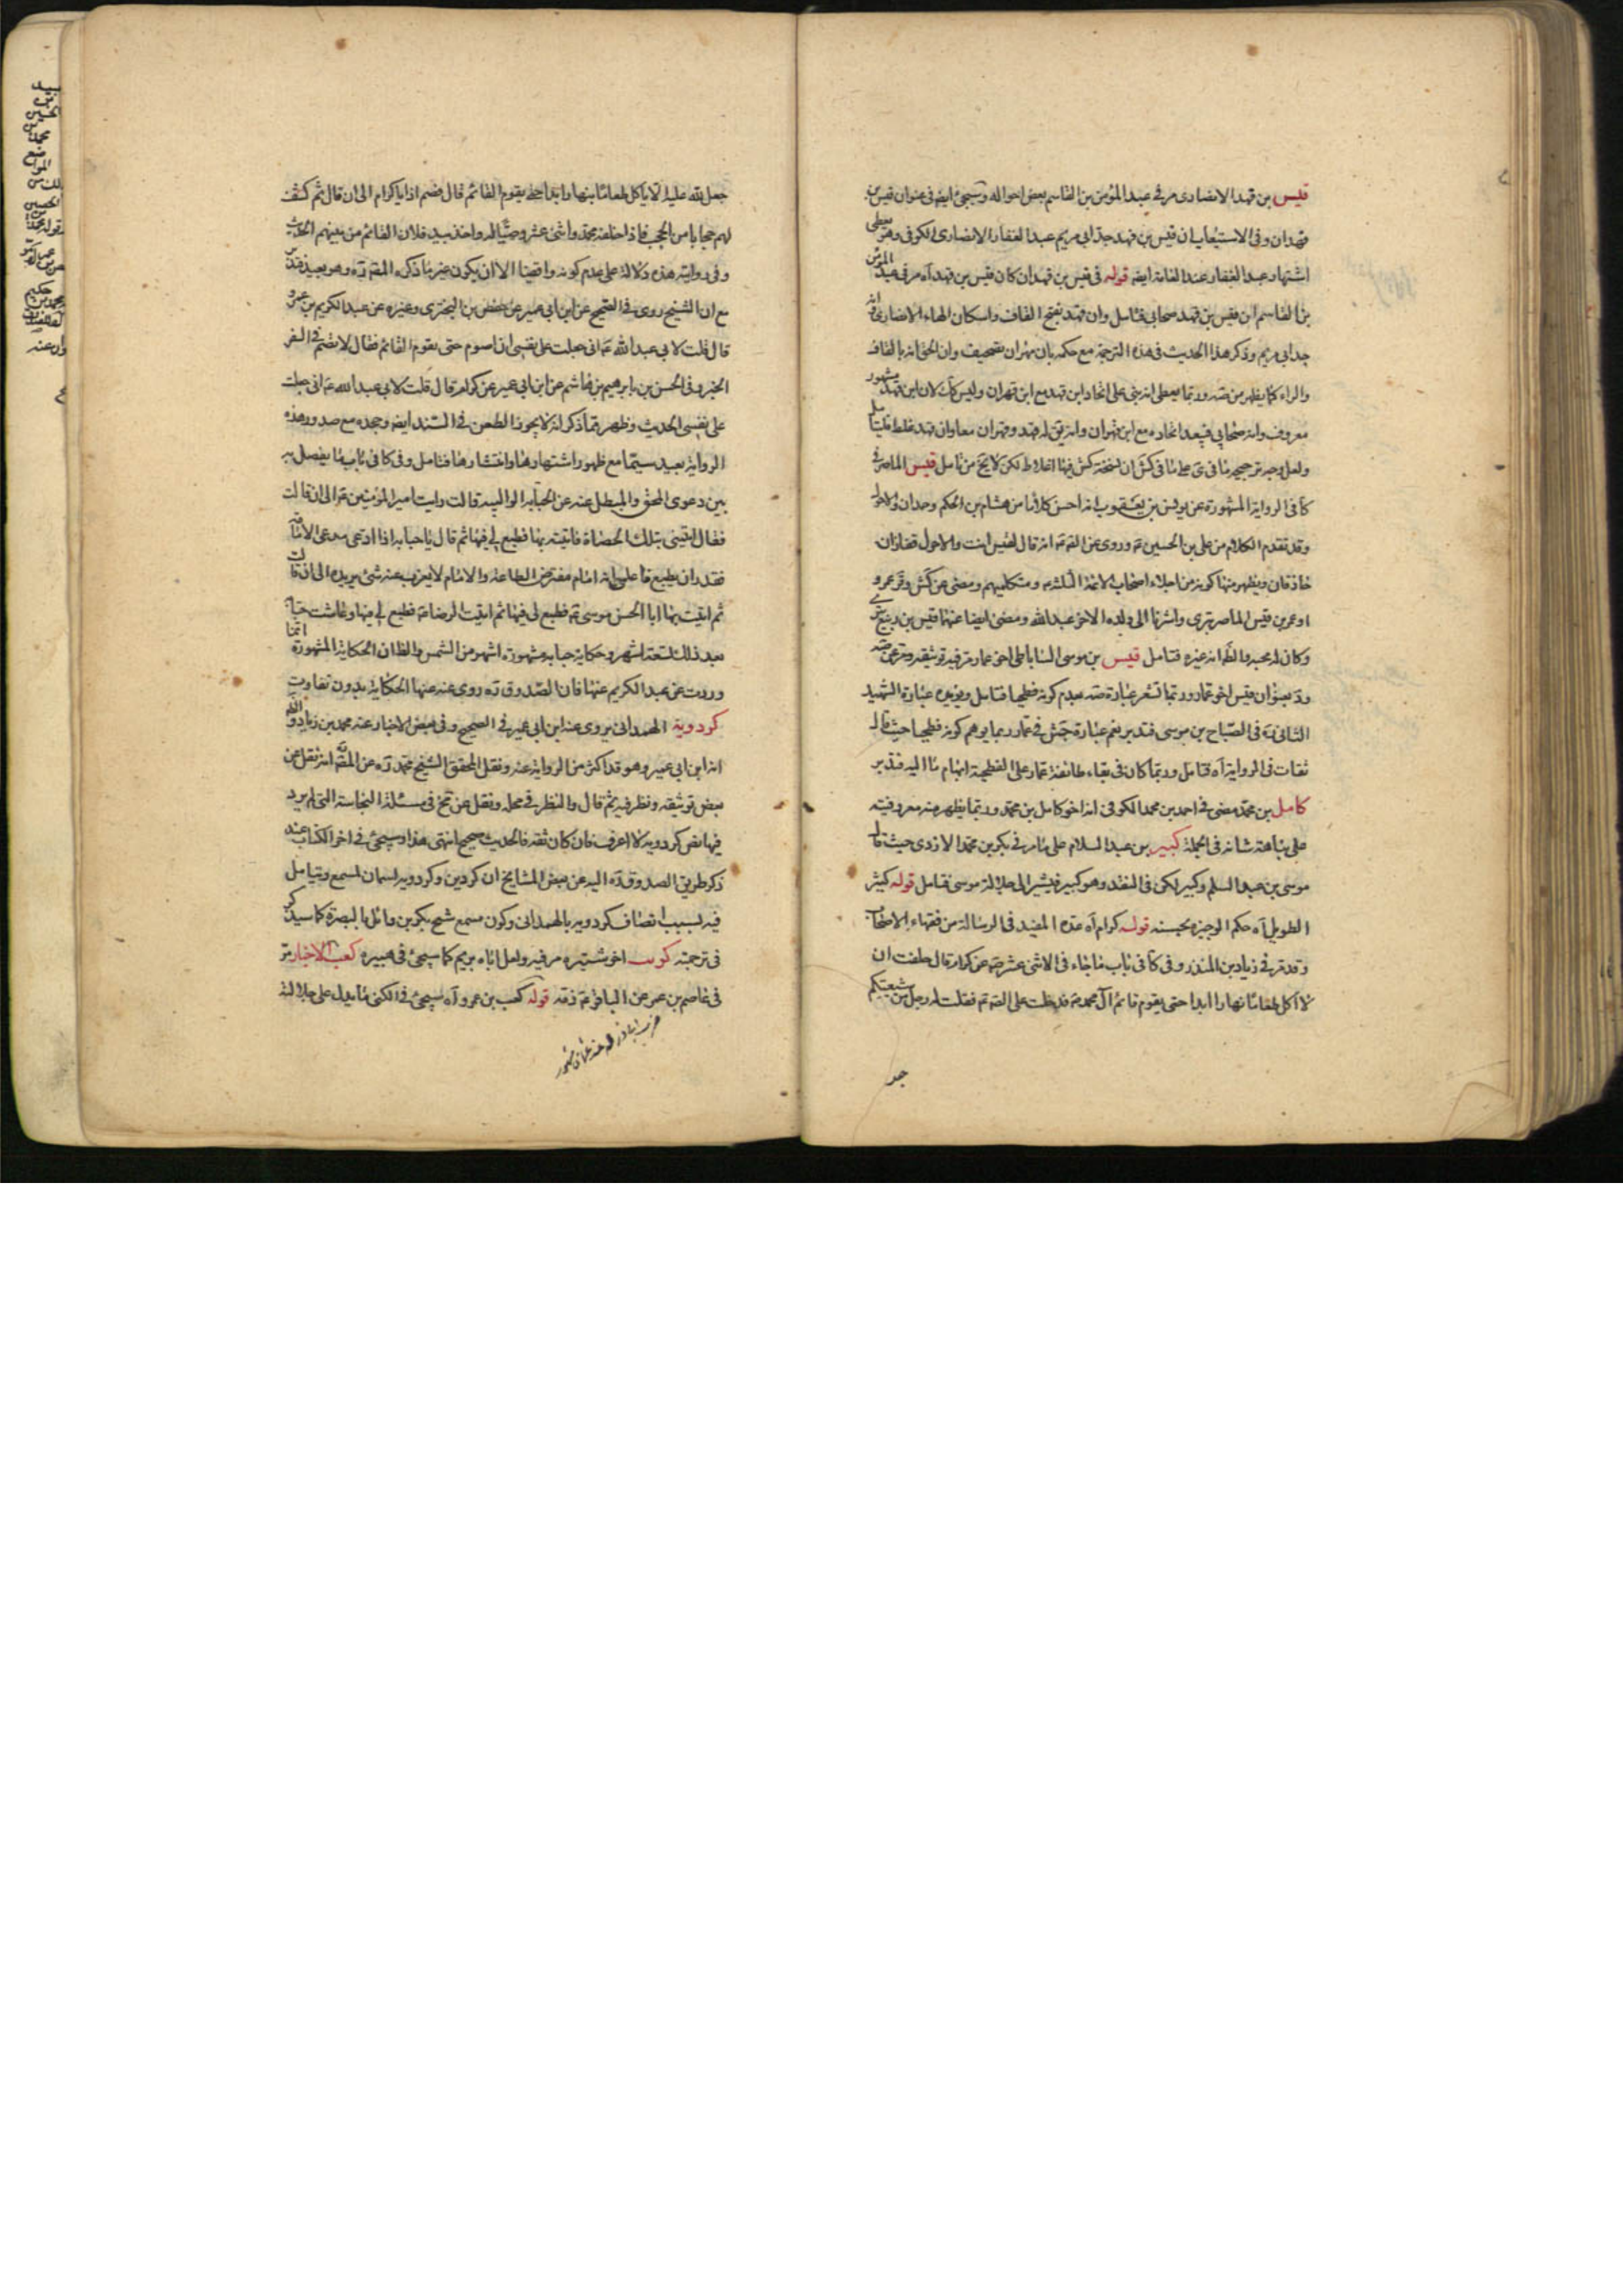 قيس بن قهد الانصارى مر فى عبد المؤمن بن القاسم بعض احواله وسيجئ ايضا فى عنوان قيس بن
قهدان وفى الاستيعاب ان قيس بن قهد جد ابى مريم عبد الغفار الانصارى الكوفى وهو يعطى
اشتهار عبد الغفار عند العامة ايضا قوله فى قيس بن قهدان كان قيس بن قهد آه مر فى عبد المؤمن
بن القاسم ان قيس بن قهد صحابى فتامل وان قهد بفتح القاف واسكان الهاء الانصارى وانه
جد ابى مريم وذكر هذا الحديث فى هذه الترجمة مع حكمه بان مهران تصحيف وان الحق انه بالقاف
والراء كما يظهر من صه وربما يعطى انه بنى على اتحاد ابن قهد مع ابن قهران وليس كك لان ابن قهد مشهور
معروف وانه صحابى فيبعد اتحاده مع ابن قهران وانه يق له قهد وقهران معا وان قهد غلط فليتامل
ولعل وجه ترجيحه ما فى ى على ما فى كش ان نسخة كش فيها اغلاط لكن لا يخ من تامل قيس الماصر فى
كا فى الرواية المشهورة عن يونس بن يعقوب انه احسن كلاما من هشام بن الحكم وحمران والاحول
وقد تعلم الكلام من على بن الحسين ع وروى عن الص ع انه قال لقيس انت والاحول قفازان
حاذقان ويظهر منها كونه من اجلاء اصحاب الائمة الثلثة و متكلميهم ومضى عن كش وقر عمرو
او عمر بن قيس الماصر بترى واشرنا الى ولده الاخر عبد الله ومضى ايضا عنهما قيس بن ربيع بترى
وكان له محبة والظ انه غيره فتامل قيس بن موسى الساباطى اخى عمار مر فيه توثيقه ومر عن صه
ود بعنوان قيس اخو عمار وربما تشعر عبارة صه بعدم كونه فطحيا فتامل ويؤيده عبارة الشهيد
الثانى ره فى الصباح بن موسى فتدبر نعم عبارة جش فى عمار ربما يوهم كونه فطحيا حيث قال
ثقات فى الرواية آه فتامل وربما كان فى بقاء طائفة عمار على الفطحية ايهام ما اليه فتدبر
كامل بن محمد مضى فى احمد بن محمد الكوفى انه اخو كامل بن محمد وربما يظهر منه معروفيته
على نباهة شانه فى الجملة كبير بن عبد السلام على ما مر فى بكر بن محمد الازدى حيث قال
موسى بن عبد السلم وكبير لكن فى النقد وهو كبير فيشير الى جلالة موسى فتامل قوله كثير
الطويل آه حكم الوجيزه بحسنه قوله كرام آه عده المفيد فى الرسالة من فقهاء الاصحاب
وقد مر فى زياد بن المنذر وفى كا فى باب ما جاء فى الاثنى عشر ع عن كرام قال حلفت ان
لا اكل طعاما نهارا ابدا حتى يقوم قائم آل محمد ص فدخلت على الص ع فقلت له رجل من شيعتكم
جعل
جعل لله عليه الا ياكل طعاما بنهار ابدا حتى يقوم القائم قال فصم اذا يا كرام الى ان قال ثم كشف
لهم حجابا من الحجب فاذا خلفه محمد واثنى عشر وصيا له واخذ بيد فلان القائم من بينهم الحديث
وفى روايته هذه دلالة على عدم كونه واقفيا الا ان يكون غير ما ذكره المقدس ره وهو بعيد فتدبر
مع ان الشيخ روى فى الصحيح عن ابن ابى عمير عن حفص بن البخترى وغيره عن عبد الكريم بن عمرو
قال قلت لابى عبد الله ع انى جعلت على نفسى ان اصوم حتى يقوم القائم فقال لا تصم فى السفر
الخبر وفى الحسن بن بابرهيم بن هاشم عن ابن ابى عمير عن كرام قال قلت لابى عبد الله ع انى جعلت
على نفسى الحديث وظهر مما ذكر انه لا يجوز الطعن فى السند ايضا وجحده مع صدور هذه
الرواية بعيد سيما مع ظهور اشتهارها وانتشارها فتامل وفى كا فى باب ما يفصل به
بين دعوى المحق والمبطل عنه عن الحبابة الوالبية قالت رايت امير المؤمنين ع الى ان قالت
فقال ايتينى بتلك الحصاة فاتيته بها فطبع لى فيها ثم قال يا حبابه اذا ادعى مدعى الامامة
فقدر ان يطبع فاعلمى انه امام مفترض الطاعة والامام لا يعزب عنه شئ يريده الى ان قالت
ثم اتيت بها ابا الحسن موسى ع فطبع لى فيها ثم اتيت الرضا ع فطبع لى فيها وعاشت حبابة
بعد ذلك تسعة اشهر وحكاية حبابه مشهورة اشهر من الشمس والظ ان الحكاية المشهورة انما
وردت عن عبد الكريم عنها فان الصدوق ره روى عنه عنها الحكاية بدون تفاوت
كردويه الهمدانى يروى عنه ابن ابى عمير فى الصحيح وفى بعض الاخبار عنه محمد بن زياد والظ
انه ابن ابى عمير وهو قد اكثر من الرواية عنه ونقل المحقق الشيخ محمد ره عن المقدس انه نقل عن
بعض توثيقه ونظر فيه ثم قال والنظر فى محله ونقل عن تخ فى مسئلة النجاسة التى لم يرد
فيها نص كردويه لا اعرفه فان كان ثقة فالحديث صحيح انتهى هذا وسيجئ فى اخر الكتاب عند
ذكر طريق الصدوق ره اليه عن بعض المشايخ ان كردين وكردويه اسمان لمسمع ويتامل
فيه بسبب اتصاف كردويه بالهمدانى وكون مسمع شيخ بكر بن وائل بالبصرة كما سيذكر
فى ترجمته كرب اخو شتيره مر فيه ولعل اباه بريم كما سيجئ فى هبيره كعب الاحبار مر
فى عاصم بن عمر عن الباقر ع ذمه قوله كعب بن عمرو آه سيجئ فى الكنى ما يدل على جلالته